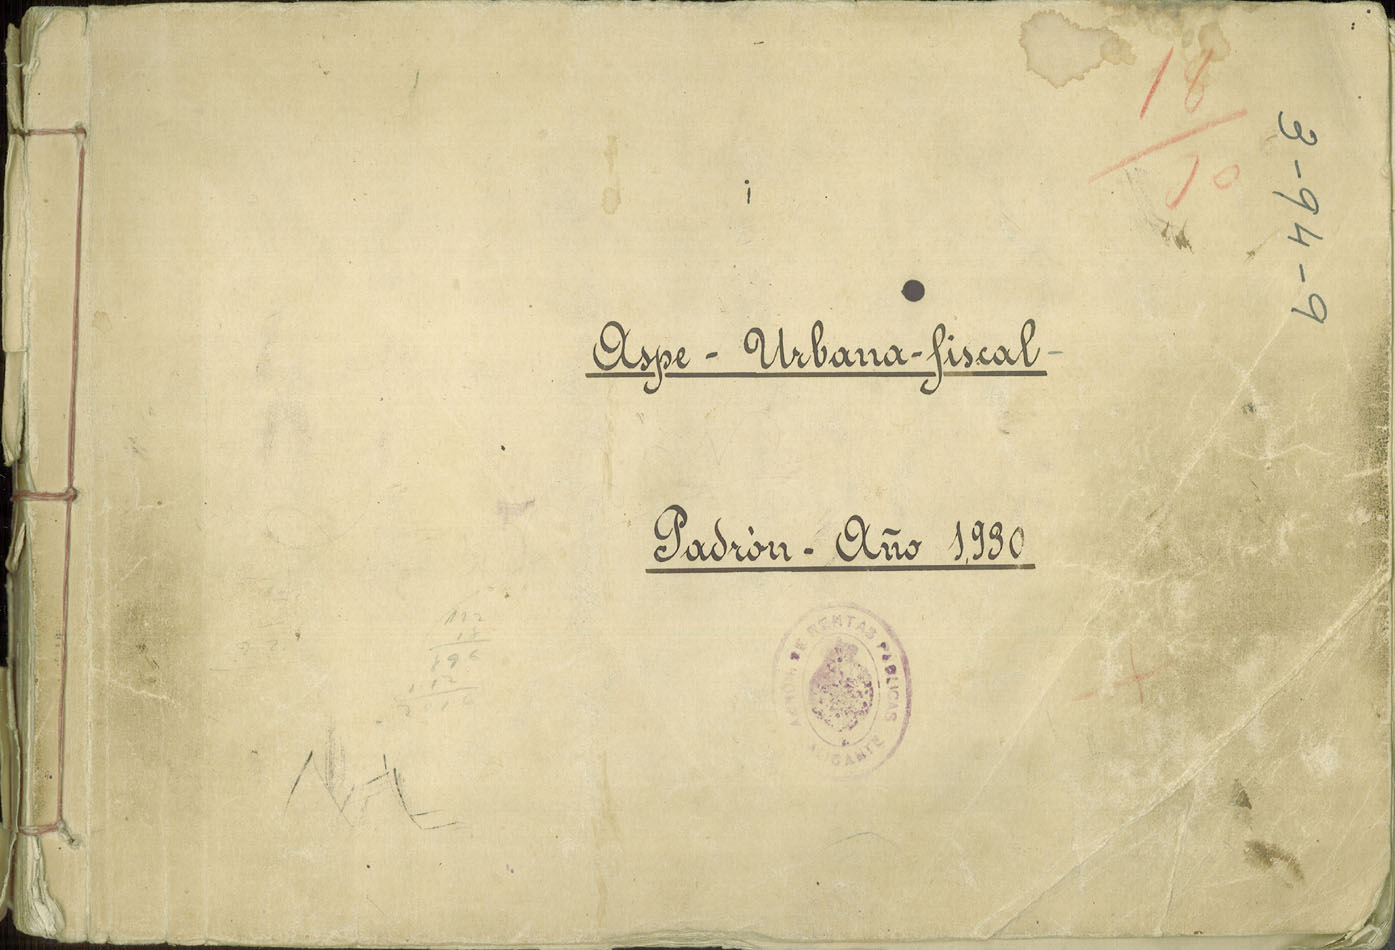 18
30
3-94-9
Aspe - Urbana-fiscal-
Padrón - Año 1,930
DE RENTAS PUBLICAS
ALICANTE
112